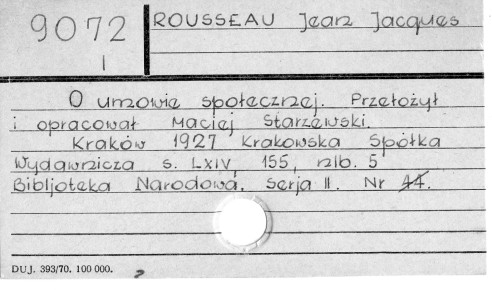 9072
I
ROUSSEAU Jean Jacques
O umowie społecznej. Przełożył
i opracował Maciej Starzewski.
Kraków 1927 Krakowska Spółka
Wydawnicza s. LXIV, 155, nlb. 5
Bibljoteka Narodowa. Serja II. Nr 44.
DUJ. 393/70. 100 000.